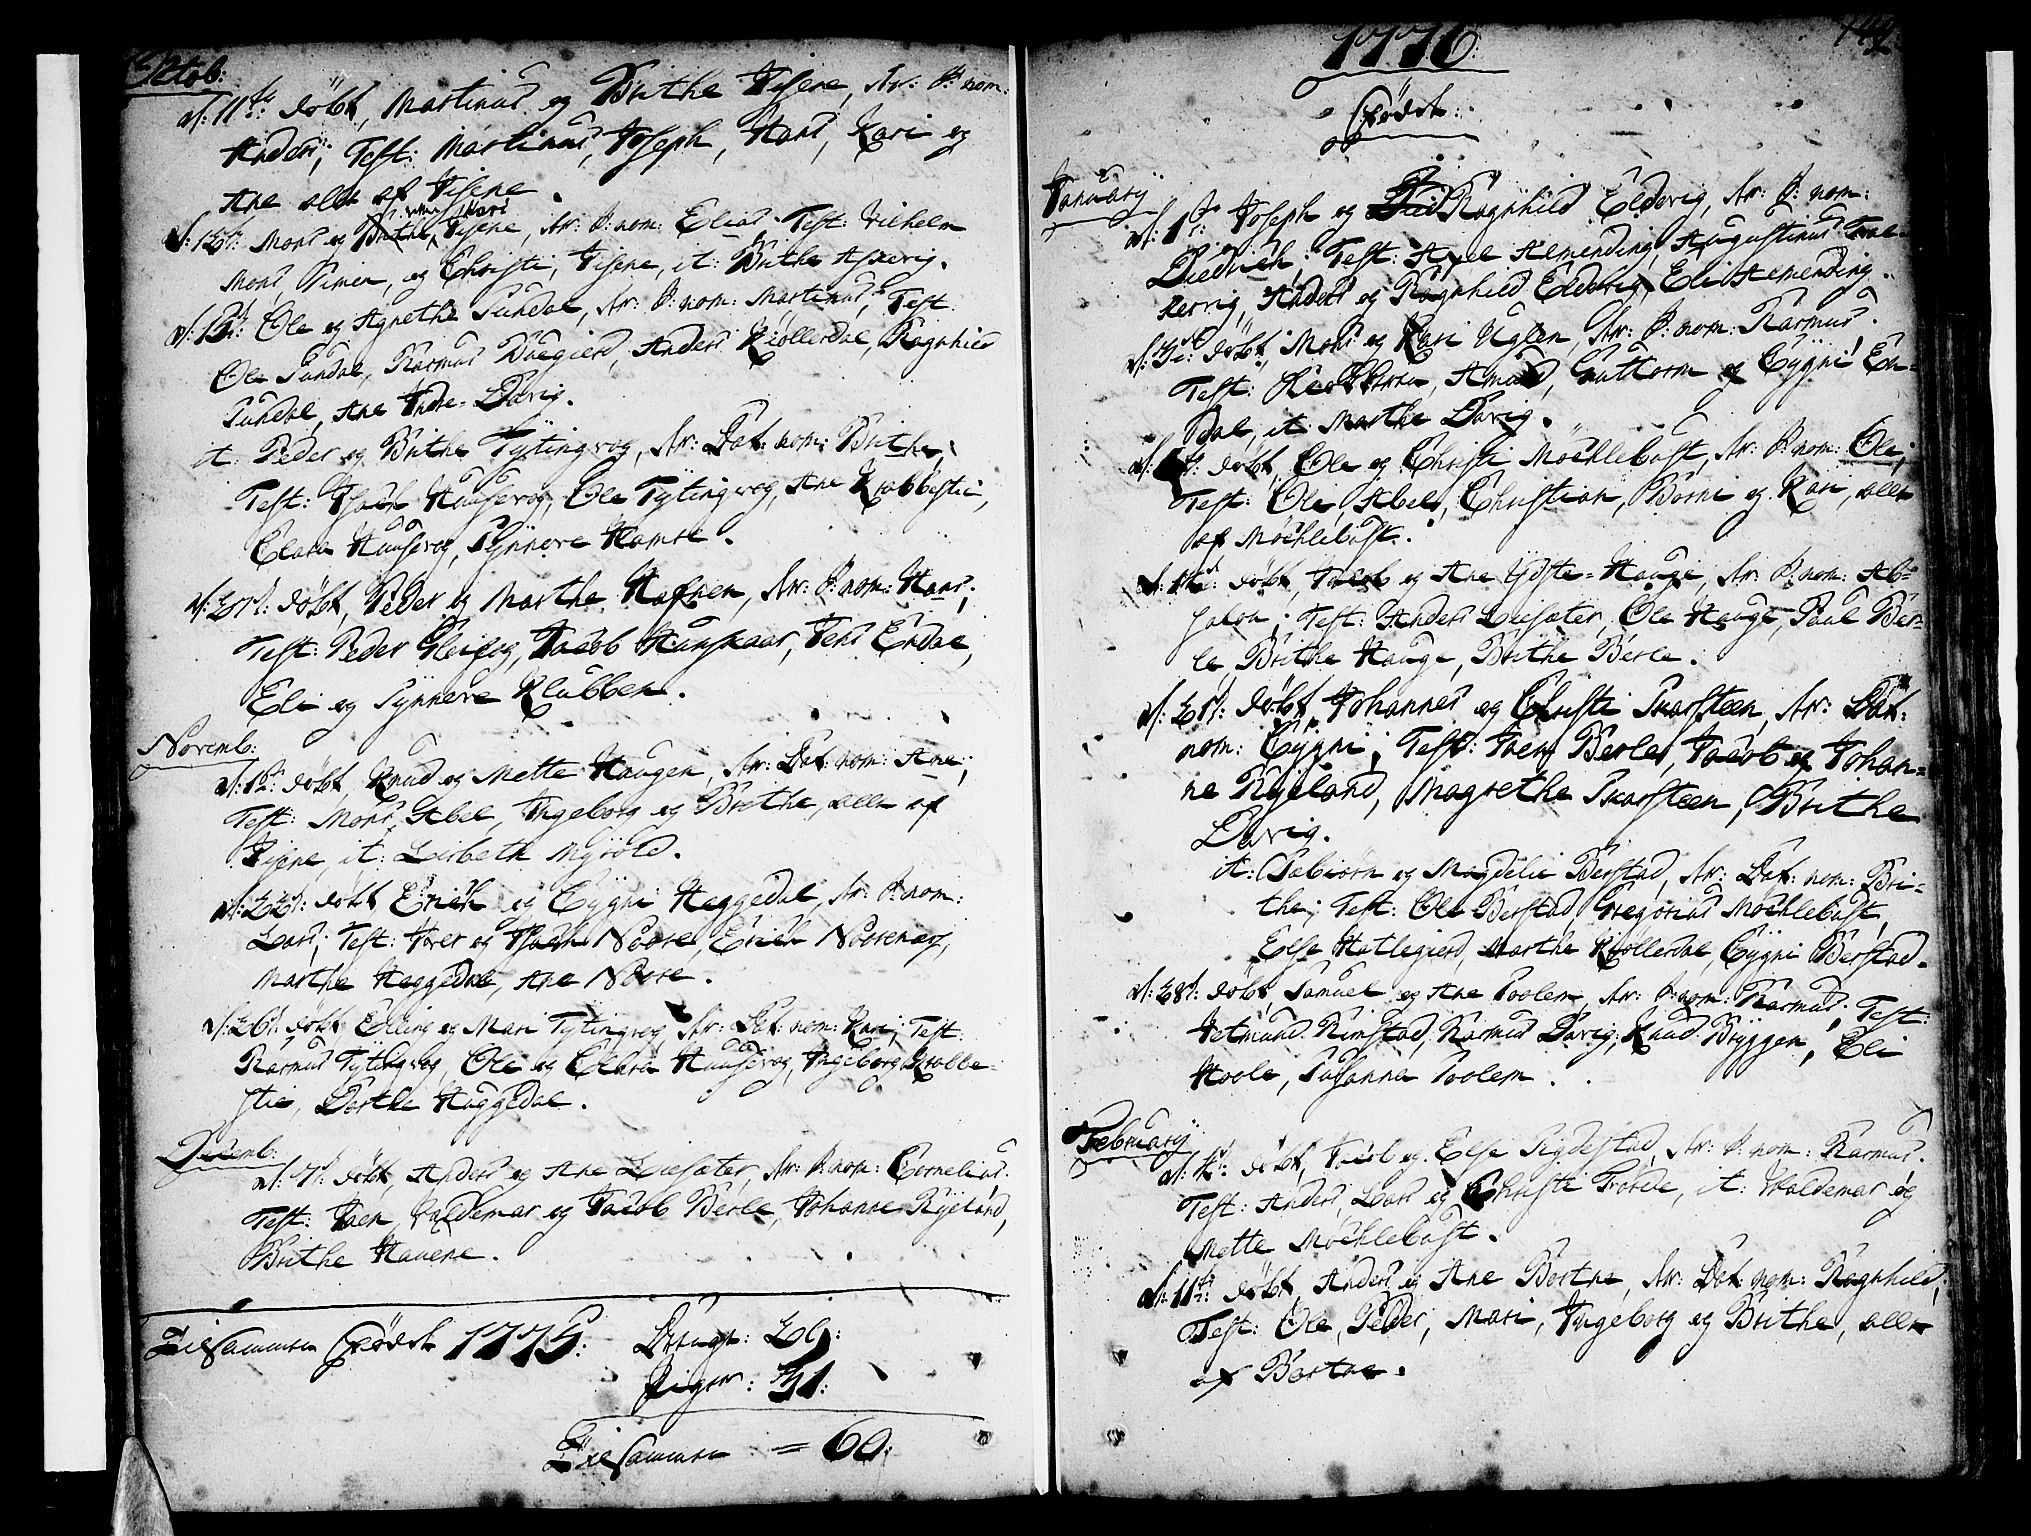 Octob:
d: 11te: döbt, Martinus og Brithe Visene, Ar: P: nom:
Anders; Test: Martinus, Joseph, Hans, Kari og
Ane alle af Visene.
Mons og Brithe, Visene, Ar: P: nom: Elias; Test: Vilhelm
Mons, Simen, og Christi, Visene, it: Brithe Askevig.
d: 15: Ole og Agnethe Sundal, Ar: P: nom: Martinus, Test:
Ole Sundal, Rasmus Bøegierd, Anders Kiøllerdal, Ragnhild
Sundal, Ane Indre-Davig.
it: Peder og Brithe Tytingvog, Ar: Dat: nom: Brithe,
Test: Isach Hausevog, Ole Tytingvog, Ane Krabbestie,
Clara Hausevog, Synneve Hamre.
döbt, Peder og Marthe Hafnen, Ar: P: nom: Hans;
Test: Peder Gleifog, Jacob Haugskaar, Jens Endal,
Eli og Synneve Klubben.
Novemb:
d: 12: döbt, Knud og Mette Haugen, Ar: Dat: nom: Ane;
Test: Mons, Abel, Ingeborg og Brithe, alle af
Visene, it: Lisbeth Myrold.
d: 22: döbt Erich og Cygni Heggedal, Ar: P: nom:
Lars; Test: Iver og Isach Noore, Erich Noorenæs,
Marthe Heggedal, Ane Noore.
d: 26: döbt, Elling og Mari Tytingvog, Ar: Dat: nom: Kari; Test:
Rasmus Tytingvog, Ole og Clara Hausevog, Ingeborg Krabbe-
stie, Dorthe Heggedal.
Decemb:
döbt, Anders og Ane Liesæter, Ar: P: nom: Cornelius;
Test: Iver, Valdemar og Jacob Berle, Johanne Ryeland,
Brithe Havene.
Tilsammen Fødde 1775:
Drenge: 29:
Piger: 31:
Tilsammen = 60:
1776:
Fødde:
January
d: 1: Joseph og Ragnhild Eldevig, Ar: P: nom:
Diedrich; Test: Abel Almending, Augustinus Traa-
kevig, Anders og Ragnhild Eldevig, Eli Almending.
döbt, Mons og Kari Uglen, Ar: P: nom: Rasmus.
Test: Amund, Guttorm og Cygni En-
dal, it: Marthe Davig.
döbt, Ole og Christi Möchlebust, Ar: P: nom: Ole;
Test: Ole, Abel, Christian, Börni og Kari, alle
af Möchlebust.
döbt, Jacob og Ane Ydste-Hauge, Ar: P: nom: Ab-
salon; Test: Anders Liesæter, Ole Hauge, Paul Ber-
le, Brithe Hauge, Brithe Berle.
d: 21: döbt, Johannes og Christi Skarsteen, Ar: Dat:
nom: Cygni; Test: Iver Berle, Jacob og Johan-
ne Ryeland, Magrethe Skarsteen, Brithe
Davig.
it: Tabiørn og Magdeli Berstad, Ar: Dat: nom: Bri-
the; Test: Ole Berstad, Gregorius Möchlebust,
Else Hatlegierd, Marthe Kiøllerdal, Cygni Berstad.
d: 28: döbt, Samuel og Ane Toolem, Ar: P: nom: Rasmus; Test:
Hetmund Rimstad, Rasmus Davig, Knud Bryggen, Eli
Hoole, Susanna Toolem.
February
döbt, Jacob og Else Rygdestad, Ar: P: nom: Rasmus;
Test: Anders, Lars og Christi Frorde, it: Valdemar og
Mette Möchlebust.
d: 11te: döbt, Anders og Ane Bortne, Ar: Dat: nom: Ragnhild;
Test: Ole, Peder, Mari, Ingeborg og Brithe, alle
af Bortne.